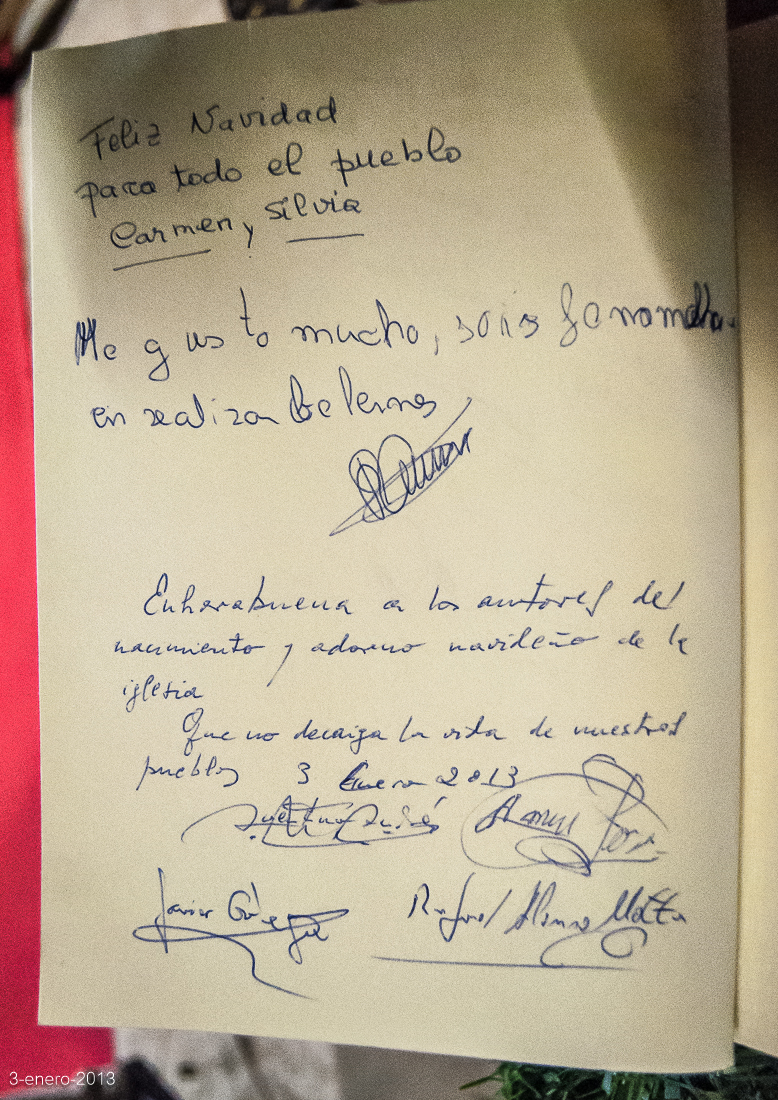 Feliz Navidad
para todo el pueblo
Carmen y Silvia
Me gusto mucho, sois
en realizar belenes
Enhorabuena a los autores del
nacimiento y adorno navideño de la
iglesia
Que no decaiga la vida de nuestros
pueblos 3 Enero 2013
Javier
Rafael Alonso
3-enero-2013